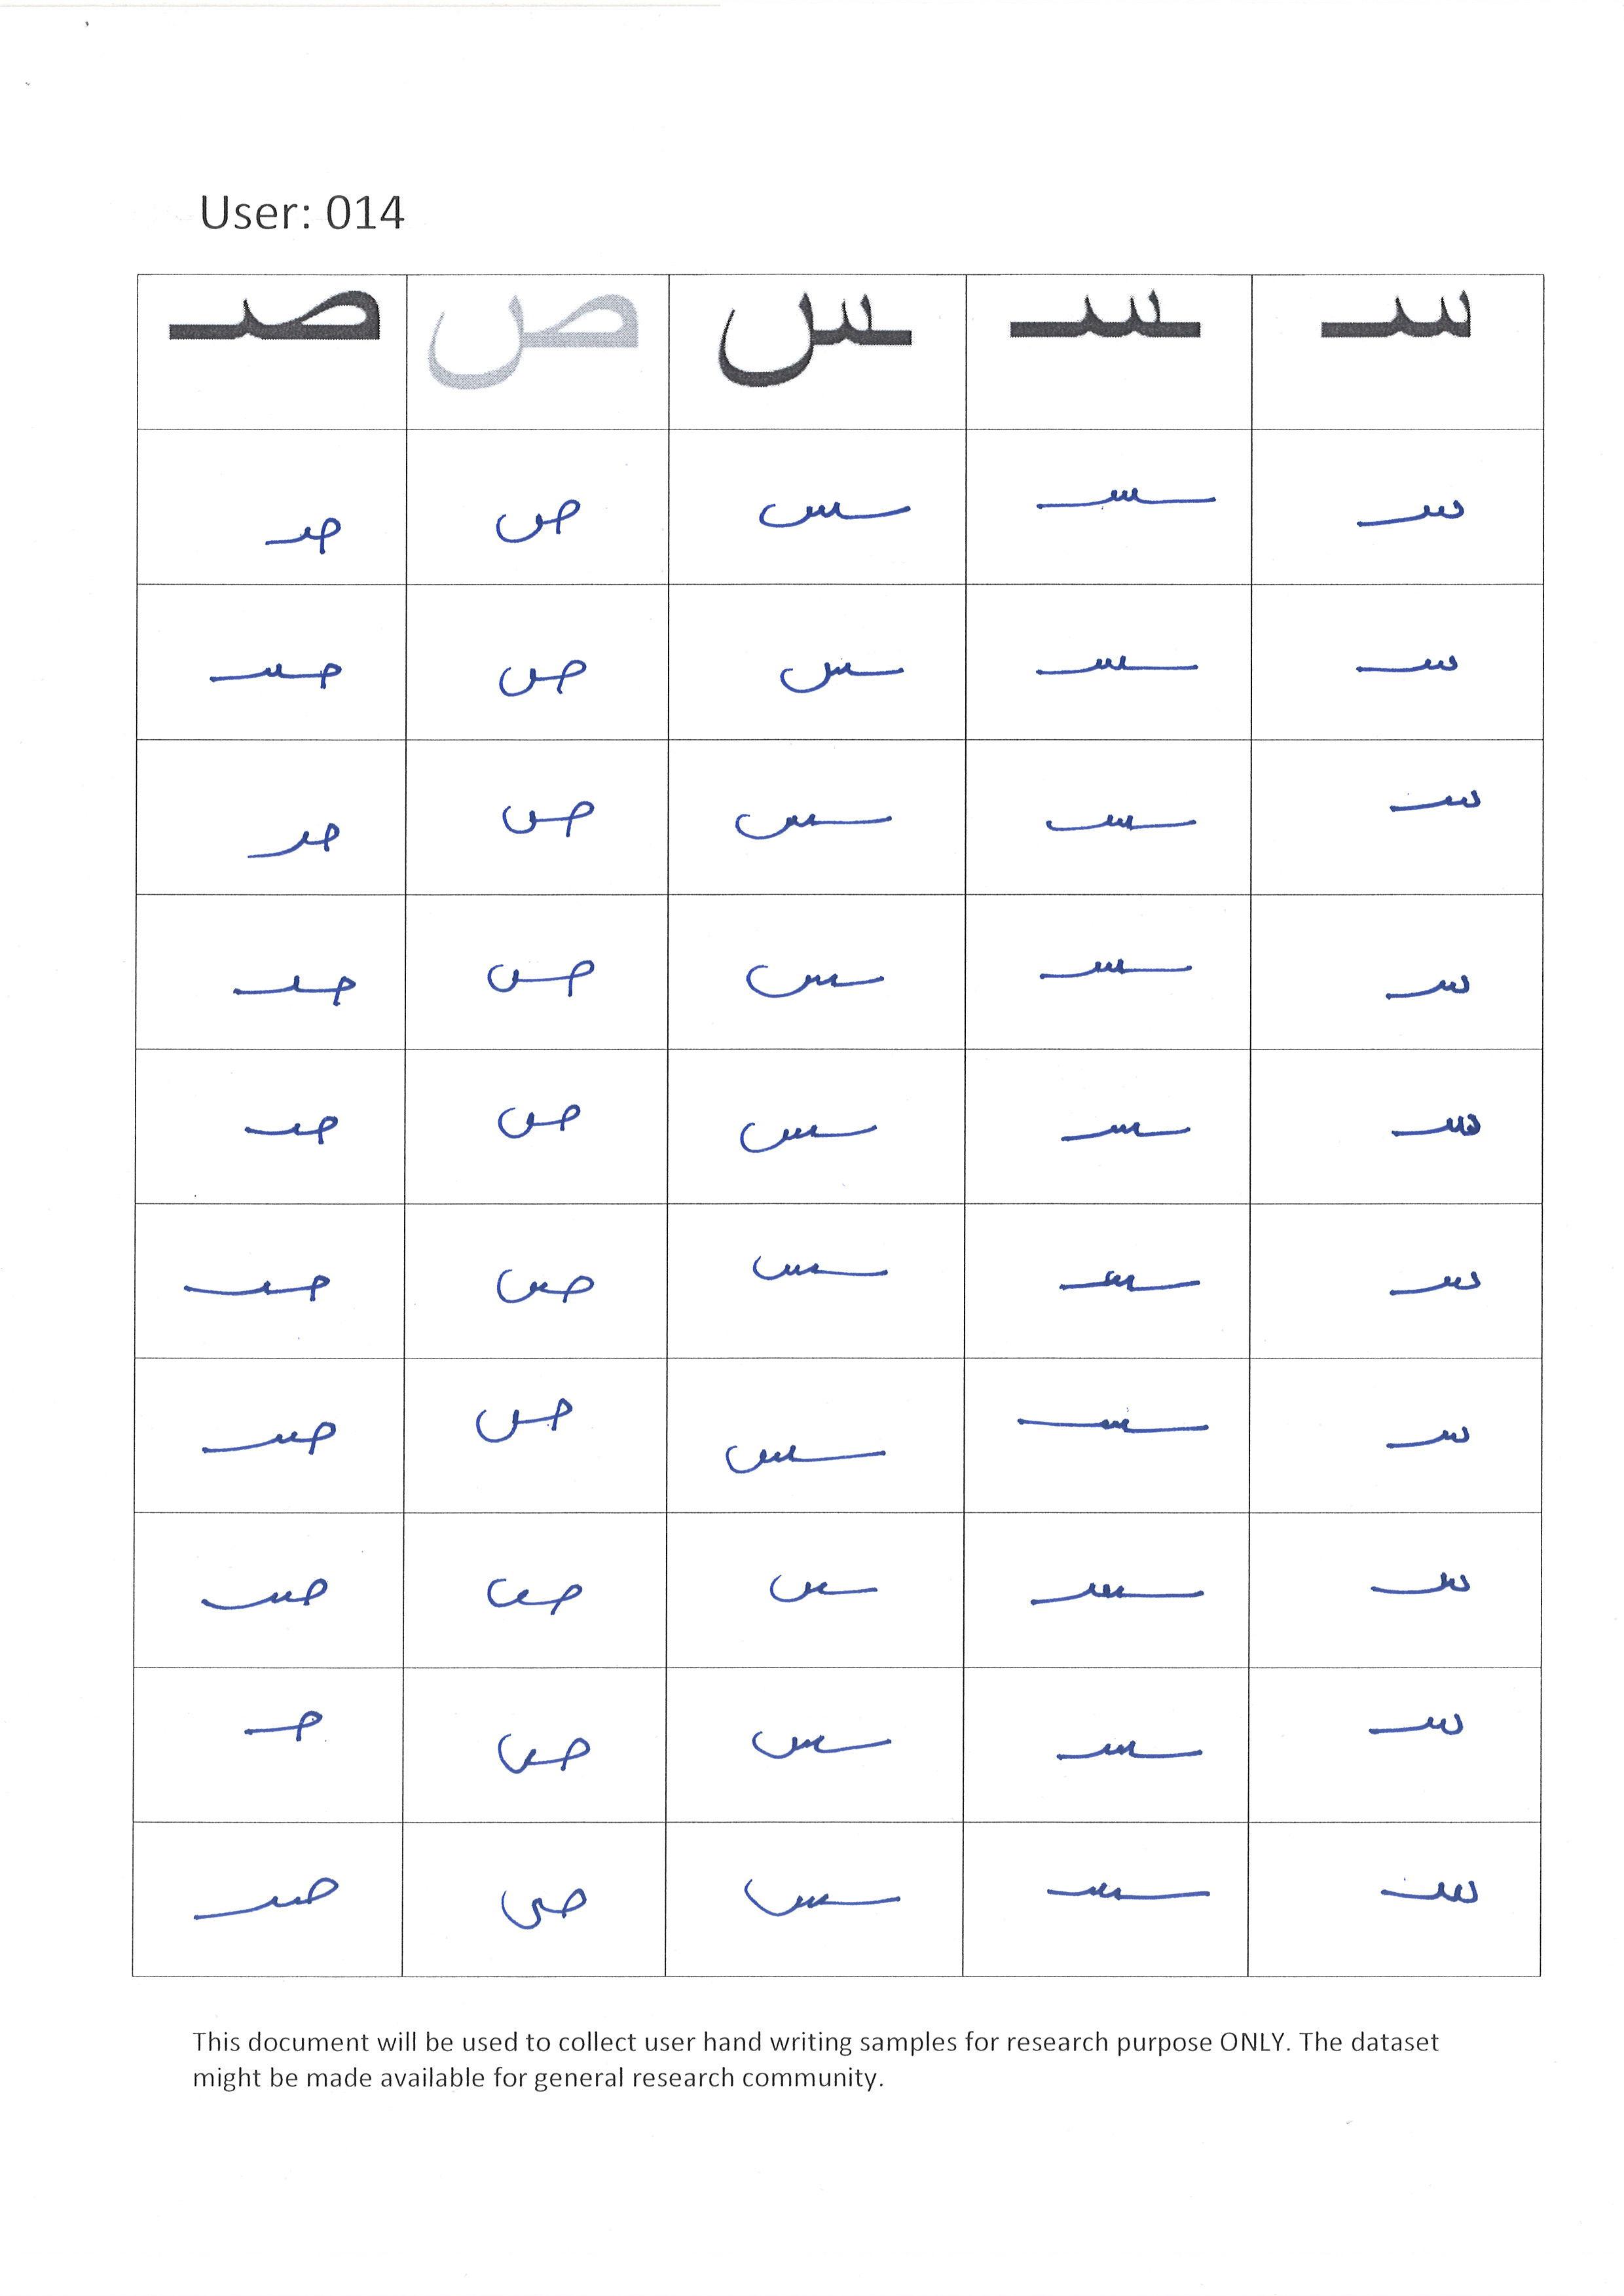 User: 014
سـ ـسـ ـس ص صـ
سـ ـسـ ـس ص صـ
سـ ـسـ ـس ص صـ
سـ ـسـ ـس ص صـ
سـ ـسـ ـس ص صـ
سـ ـسـ ـس ص صـ
سـ ـسـ ـس ص صـ
سـ ـسـ ـس ص صـ
سـ ـسـ ـس ص صـ
سـ ـسـ ـس ص صـ
سـ ـسـ ـس ص صـ
This document will be used to collect user hand writing samples for research purpose ONLY. The dataset
might be made available for general research community.